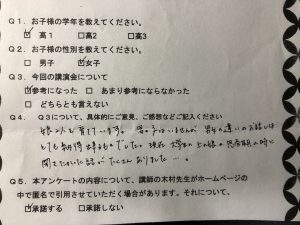 Q1．お子様の学年を教えてください。
☑ 高1 □高2 □高3
Q2．お子様の性別を教えてください。
□ 男子 ☑女子
Q3．今回の講演会について
☑参考になった □ あまり参考にならなかった
□ どちらとも言えない
Q4．Q3について、具体的にご意見、ご感想などご記入ください
娘2人を育てています。男の子はいませんが 男女の違いのお話は
とても納得出来るものでした。現在 大学生の上の娘の思春期の時に
聞きたかった話がたくさんありました…。
Q5．本アンケートの内容について、講師の木村先生がホームページの
中で匿名で引用させていただく場合があります。それについて、
☑承諾する □承諾しない